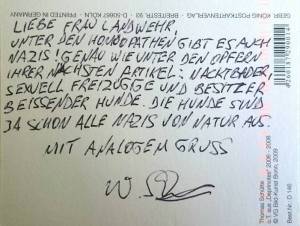 GEBR. KÖNIG POSTKARTENVERLAG · BREITESTR. 93 · D-50667 KÖLN · PRINTED IN GERMANY
LIEBE FRAU LANDWEHR,
UNTER DEN HOMÖOPATHEN GIBT ES AUCH
NAZIS! GENAU WIE UNTER DEN OPFERN
IHRER NÄCHSTEN ARTIKEL: NACKTBADER,
SEXUELL FREIZÜGIGE UND BESITZER
BEISSENDER HUNDE. DIE HUNDE SIND
JA SCHON ALLE NAZIS VON NATUR AUS.
MIT ANALOGEM GRUSS
Thomas Schütte
o.T. aus „Deprinotes“ 2006 - 2008
© VG Bild-Kunst Bonn, 2009
Best.Nr.: D 146